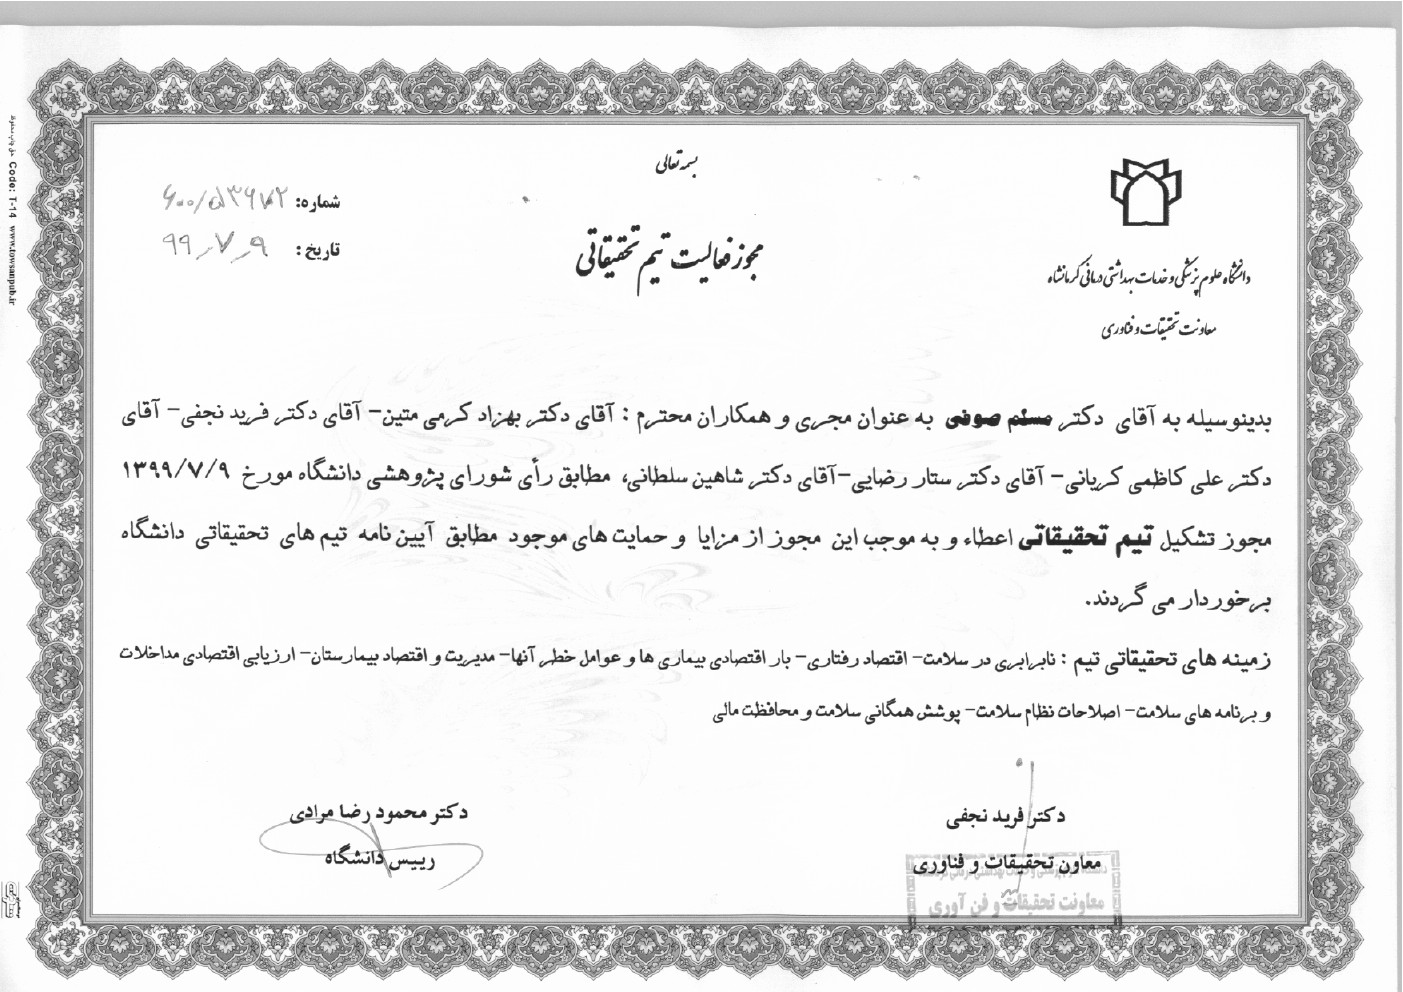 بسمه تعالی
شماره: ۶۰۰/۵۳۶۷۲
تاریخ: ۹۹/۷/۹
مجوز فعالیت تیم تحقیقاتی
دانشگاه علوم پزشکی و خدمات بهداشتی درمانی کرمانشاه
معاونت تحقیقات و فناوری
بدینوسیله به آقای دکتر مسلم صوفی به عنوان مجری و همکاران محترم : آقای دکتر بهزاد کرمی متین- آقای دکتر فرید نجفی- آقای
دکتر علی کاظمی کریانی- آقای دکتر ستار رضایی-آقای دکتر شاهین سلطانی، مطابق رأی شورای پژوهشی دانشگاه مورخ ۱۳۹۹/۷/۹
مجوز تشکیل تیم تحقیقاتی اعطاء و به موجب این مجوز از مزایا و حمایت های موجود مطابق آیین نامه تیم های تحقیقاتی دانشگاه
برخوردار می گردند.
زمینه های تحقیقاتی تیم : نابرابری در سلامت- اقتصاد رفتاری- بار اقتصادی بیماری ها و عوامل خطر آنها- مدیریت و اقتصاد بیمارستان- ارزیابی اقتصادی مداخلات
و برنامه های سلامت- اصلاحات نظام سلامت- پوشش همگانی سلامت و محافظت مالی
دکتر فرید نجفی
معاون تحقیقات و فناوری
دکتر محمود رضا مرادی
رییس دانشگاه
معاونت تحقیقات و فن آوری
Code: T-14 www.towsanpub.ir